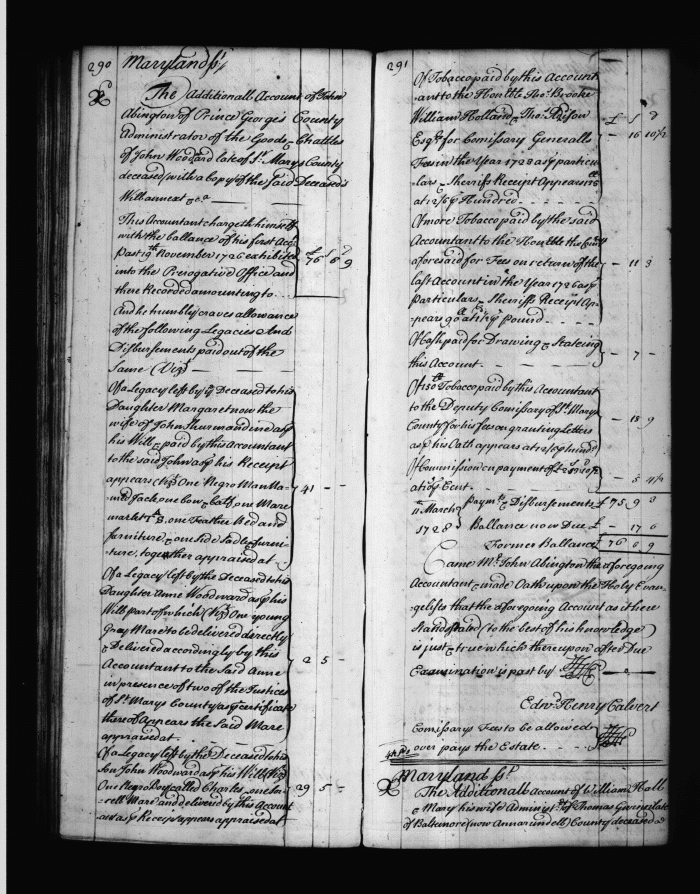 290 Maryland ss.
The Additionall Account of John
Abington of Prince George's County
Administrator of the Goods & Chattles
of John Woodard late of St. Marys County
deceased with a Copy of the said Deceased's
Will annext &ca
This Accountant chargeth himself
with the ballance of his first Acct.
Past 19th November 1726 exhibited
into the Prerogative Office and
there Recorded amounting to
£ s d
76 6 9
And he humbly craves allowance
of the following Legacies And
Disbursements paid out of the
Same (Vizt)
Of a Legacy left by ye Deceased to his
Daughter Margaret now the
wife of John Thurman in as p
his Will & paid by this Accountant
to the said John as p his Receipt
appears (Vizt) One Negro Man Na-
med Jack, one bow, one Mare
markt one Feather Bed and
furniture & one side Sadle furni-
ture, together appraised at
41 - -
Of a Legacy left by the Deceased to his
Daughter Anne Woodward as p his
Will part of which (Vizt) One young
Gray Mare to be delivered directly
& Delivered accordingly by this
Accountant to the Said Anne
in presence of two of the Justices
of St. Marys County as p Certificate
thereof Appears the Said Mare
appraised at
2 5 -
Of a Legacy left by the Deceased to his
Son John Woodward as p his Will Vizt
One Negro Boy called Charles, one Sor-
rell Mare and delivered by this Account
ant as p Receipt appears appraised at
29 5 -
291
Of Tobacco paid by this Account
ant to the Honble Tho. Brooke
William Holland & Tho.
Esqrs for Comissary Generalls
Fees in the Year 1728 as p particu-
lars & Sherriffs Receipt Appears
at 12/6 p Hundred
£ s d
- 16 10½
Of more Tobacco paid by the said
Accountant to the Honble the
aforesaid for Fees on return of the
last Account in the Year 1726 as p
particulars & Sherriffs Receipt Ap-
pears p Pound
- 11 3
Of Cash paid for Drawing & Stateing
this Account
- 7 -
Of 150 Tobacco paid by this Accountant
to the Deputy Comissary of St. Marys
County for his fees on granting Letters
as p his Oath appears at 12/6 p hund
- 18 9
Of Commission on payment of
at 10 p Cent
- 5 4½
11 March 1728
Paymts & Disbursements £ 75 9 3
Ballance now Due £ - 17 6
Former Ballance £ 76 6 9
Came Mr. John Abington the aforegoing
Accountant & made Oath upon the Holy Evan-
gelists that the aforegoing Account as it here
Stands Stated (to the best of his knowledge)
is just & true which thereupon after Due
Examination is past by
Edwd. Henry Calvert
Comissarys Fees to be allowed
over pays the Estate
Maryland ss.
The Additionall Account of William Hall
& Mary his wife Adminis of Thomas late
of Baltimore (now Annarundell) County deceased